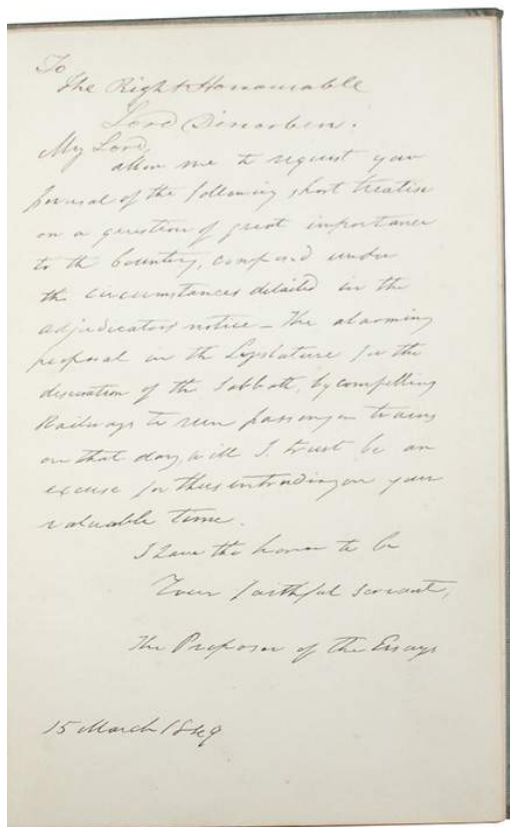 To
The Right Honourable
Lord Dinorben.
My Lord,
allow me to request your
perusal of the following short treatise
on a question of great importance
to the Country, composed under
the circumstances detailed in the
adjudicators notice – the alarming
proposal in the Legislature for the
desecration of the Sabbath, by compelling
Railways to run passenger trains
on that day, will I trust be an
excuse for thus intruding on your
valuable time.
I have the honor to be
Your faithful Servant,
The Proposer of the Essays
15 March 1849